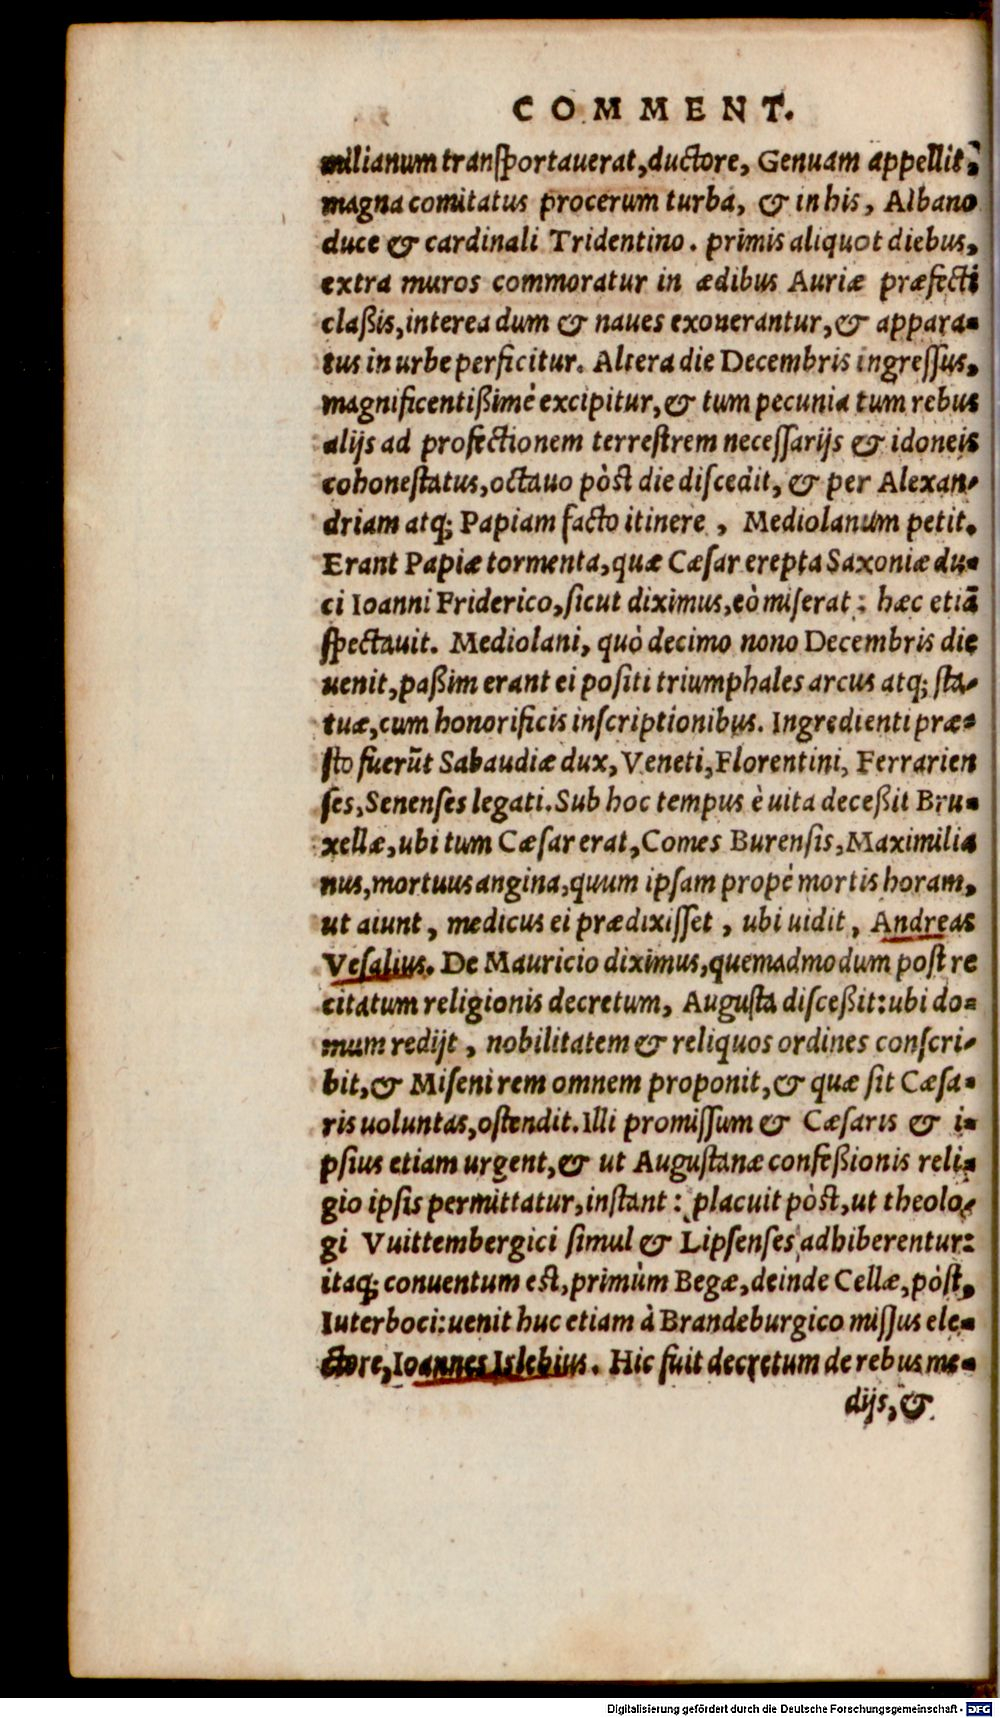 COMMENT.
milianum transportauerat, ductore, Genuam appellit:
magna comitatus procerum turba, & in his, Albano
duce & cardinali Tridentino. primis aliquot diebus,
extra muros commoratur in ædibus Auriæ præfecti
claßis, interea dum & naues exonerantur, & appara-
tus in urbe perficitur. Altera die Decembris ingressus,
magnificentißimè excipitur, & tum pecunia tum rebus
alijs ad profectionem terrestrem necessarijs & idoneis
cohonestatus, octauo pòst die discedit, & per Alexan-
driam atq; Papiam facto itinere, Mediolanum petit.
Erant Papiæ tormenta, quæ Cæsar erepta Saxoniæ du-
ci Ioanni Friderico, sicut diximus, eò miserat: hæc etiā
spectauit. Mediolani, quò decimo nono Decembris die
uenit, paßim erant ei positi triumphales arcus atq; sta-
tuæ, cum honorificis inscriptionibus. Ingredienti præ-
sto fuerūt Sabaudiæ dux, Veneti, Florentini, Ferrarien
ses, Senenses legati. Sub hoc tempus è uita deceßit Bru-
xellæ, ubi tum Cæsar erat, Comes Burensis, Maximilia
nus, mortuus angina, quum ipsam propè mortis horam,
ut aiunt, medicus ei prædixisset, ubi uidit, Andreas
Vesalius. De Mauricio diximus, quemadmodum post re
citatum religionis decretum, Augusta disceßit: ubi do-
mum redijt, nobilitatem & reliquos ordines conscri-
bit, & Miseni rem omnem proponit, & quæ sit Cæsa-
ris uoluntas, ostendit. Illi promissum & Cæsaris & i-
psius etiam urgent, & ut Augustanæ confeßionis reli-
gio ipsis permittatur, instant: placuit pòst, ut theolo-
gi Vuittembergici simul & Lipsenses adhiberentur:
itaq; conuentum est, primùm Begæ, deinde Cellæ, pòst,
Iuterboci: uenit huc etiam à Brandeburgico missus ele-
ctore, Ioannes Islebius. Hic fuit decretum de rebus me-
dijs, &
Digitalisierung gefördert durch die Deutsche Forschungsgemeinschaft - DFG